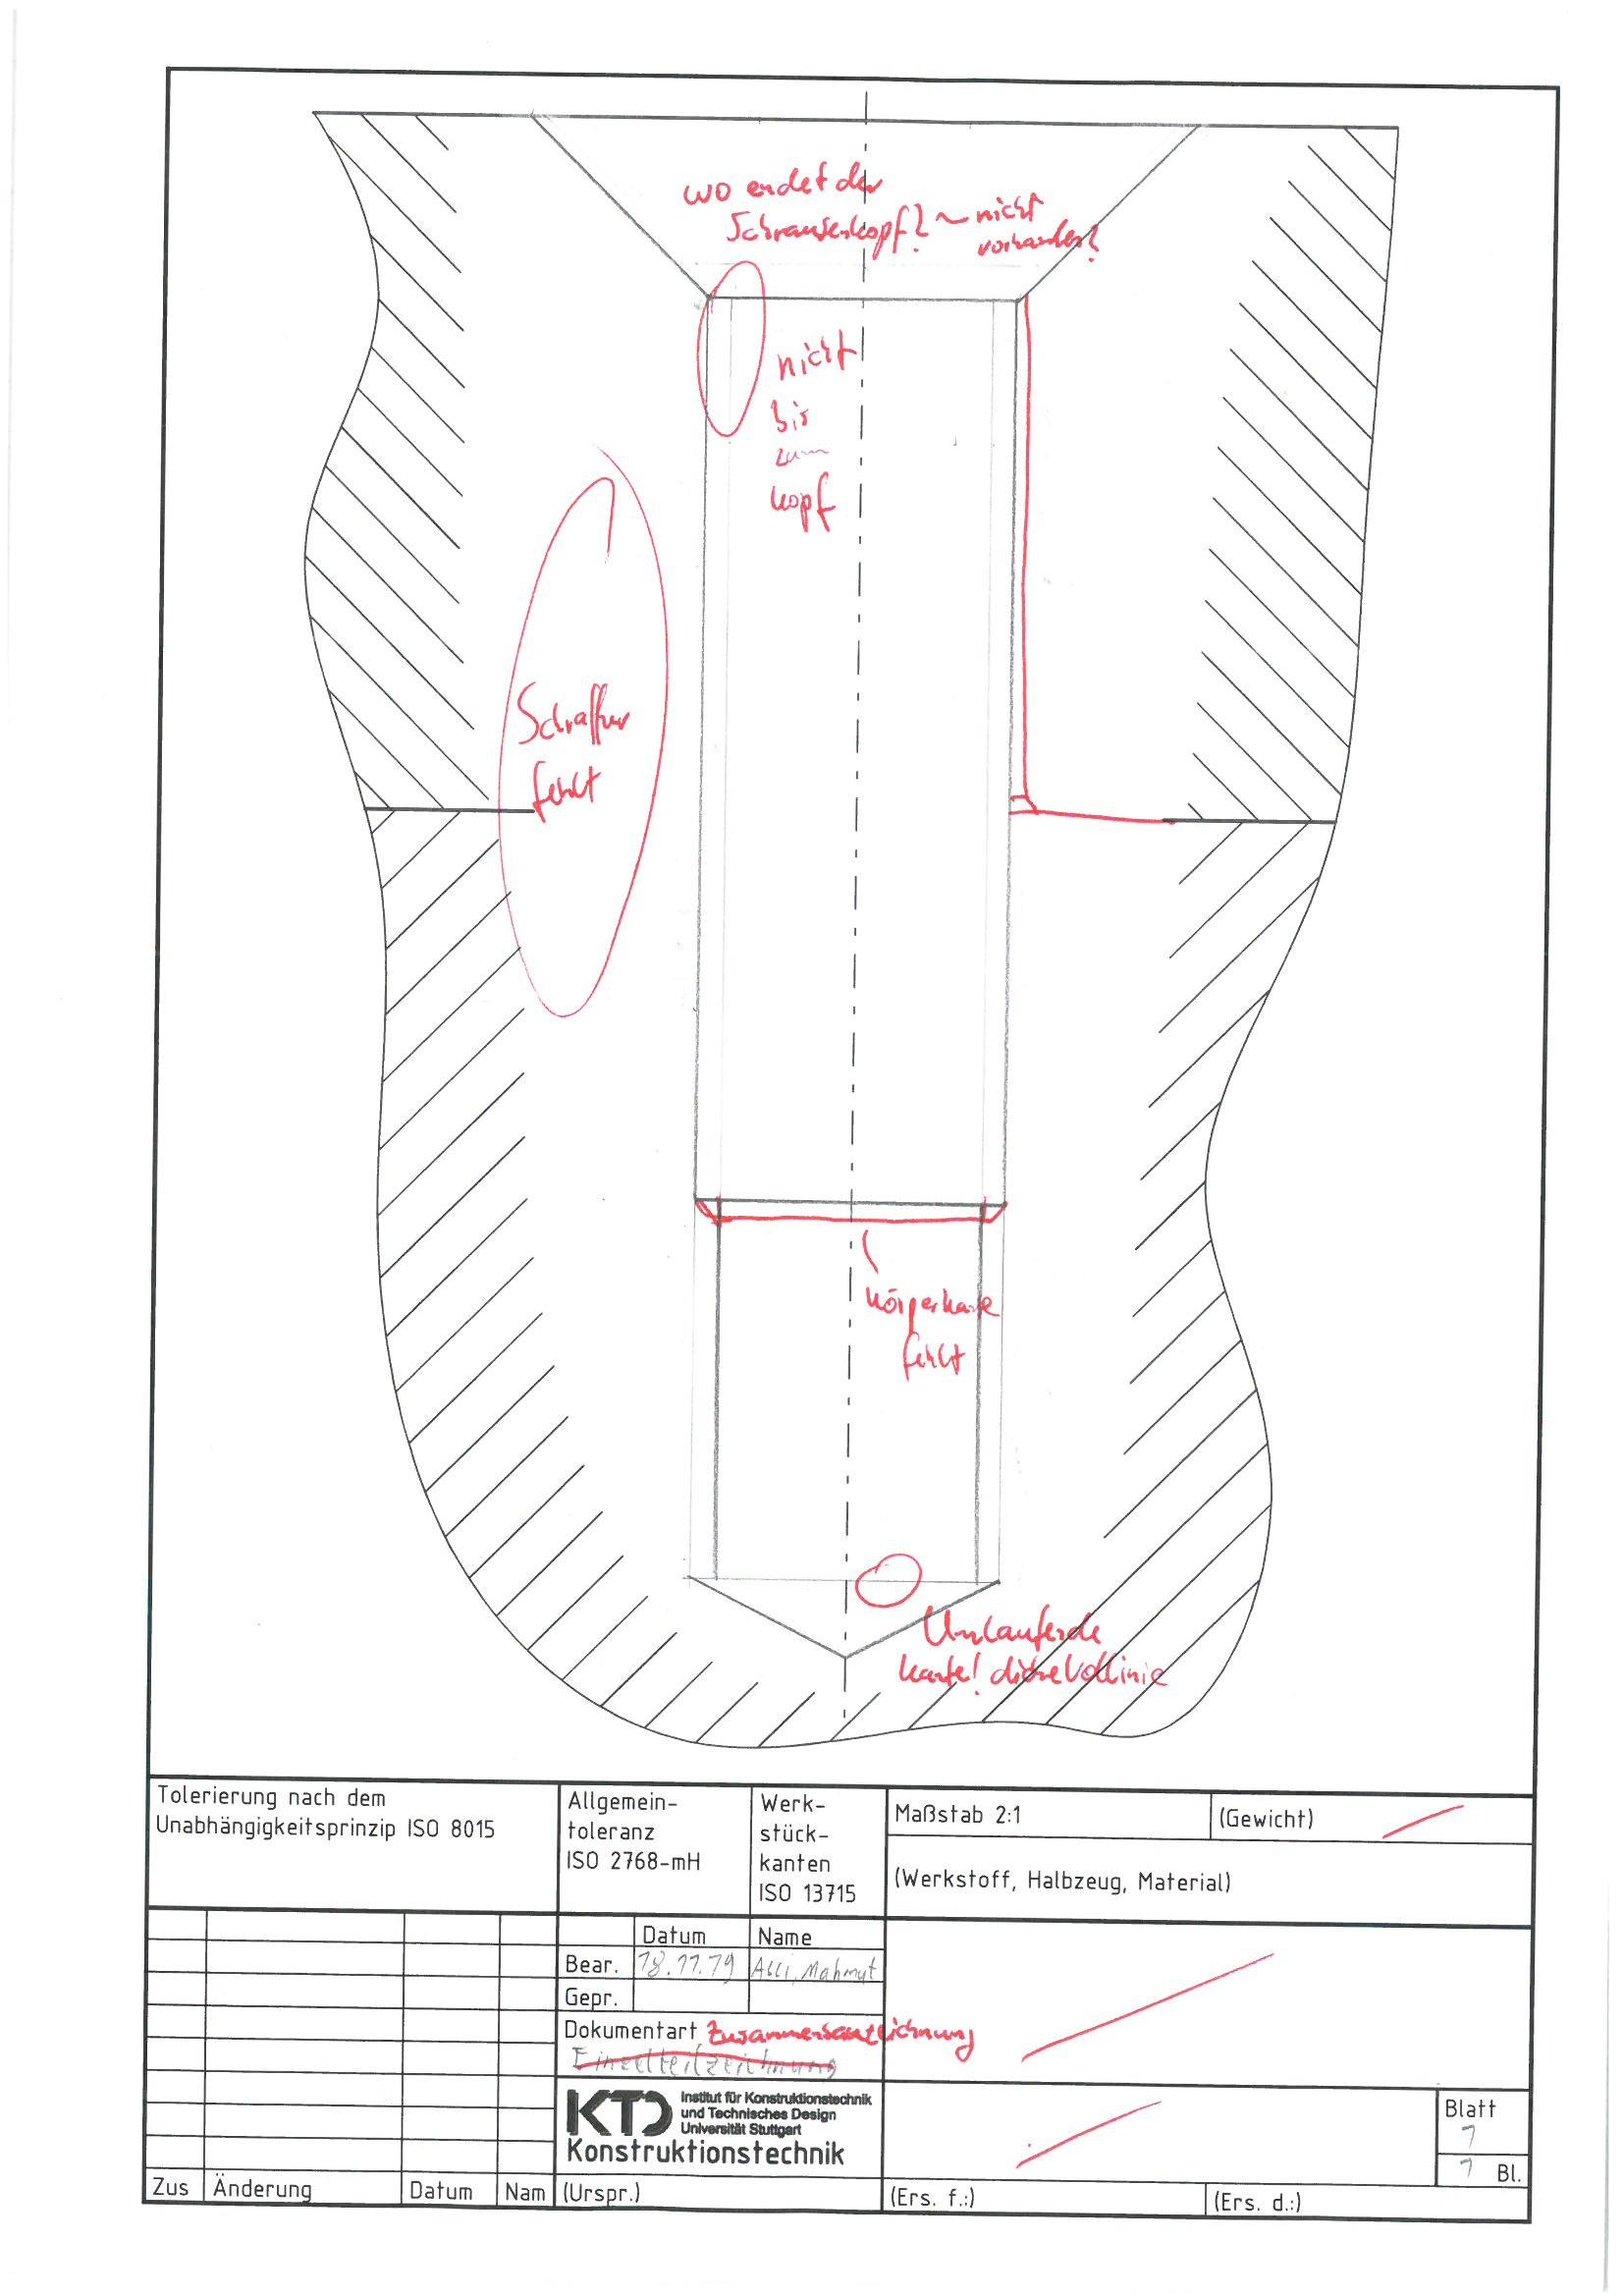 wo endet der
Schraubenkopf? ~ nicht
vorhanden?
nicht
bis
zum
kopf
Schraffur
fehlt
Körperkante
fehlt
Umlaufende
Kante! dicke Vollinie
Tolerierung nach dem
Unabhängigkeitsprinzip ISO 8015
Allgemein-
toleranz
ISO 2768-mH
Werk-
stück-
kanten
ISO 13715
Maßstab 2:1
(Gewicht)
(Werkstoff, Halbzeug, Material)
Datum Name
Bear. 18.11.19 Mahmut
Gepr.
Dokumentart
Einzelteilzeichnung
KTD Institut für Konstruktionstechnik
und Technisches Design
Universität Stuttgart
Konstruktionstechnik
Blatt
1
1 Bl.
Zus Änderung Datum Nam (Urspr.) (Ers. f.:) (Ers. d.:)